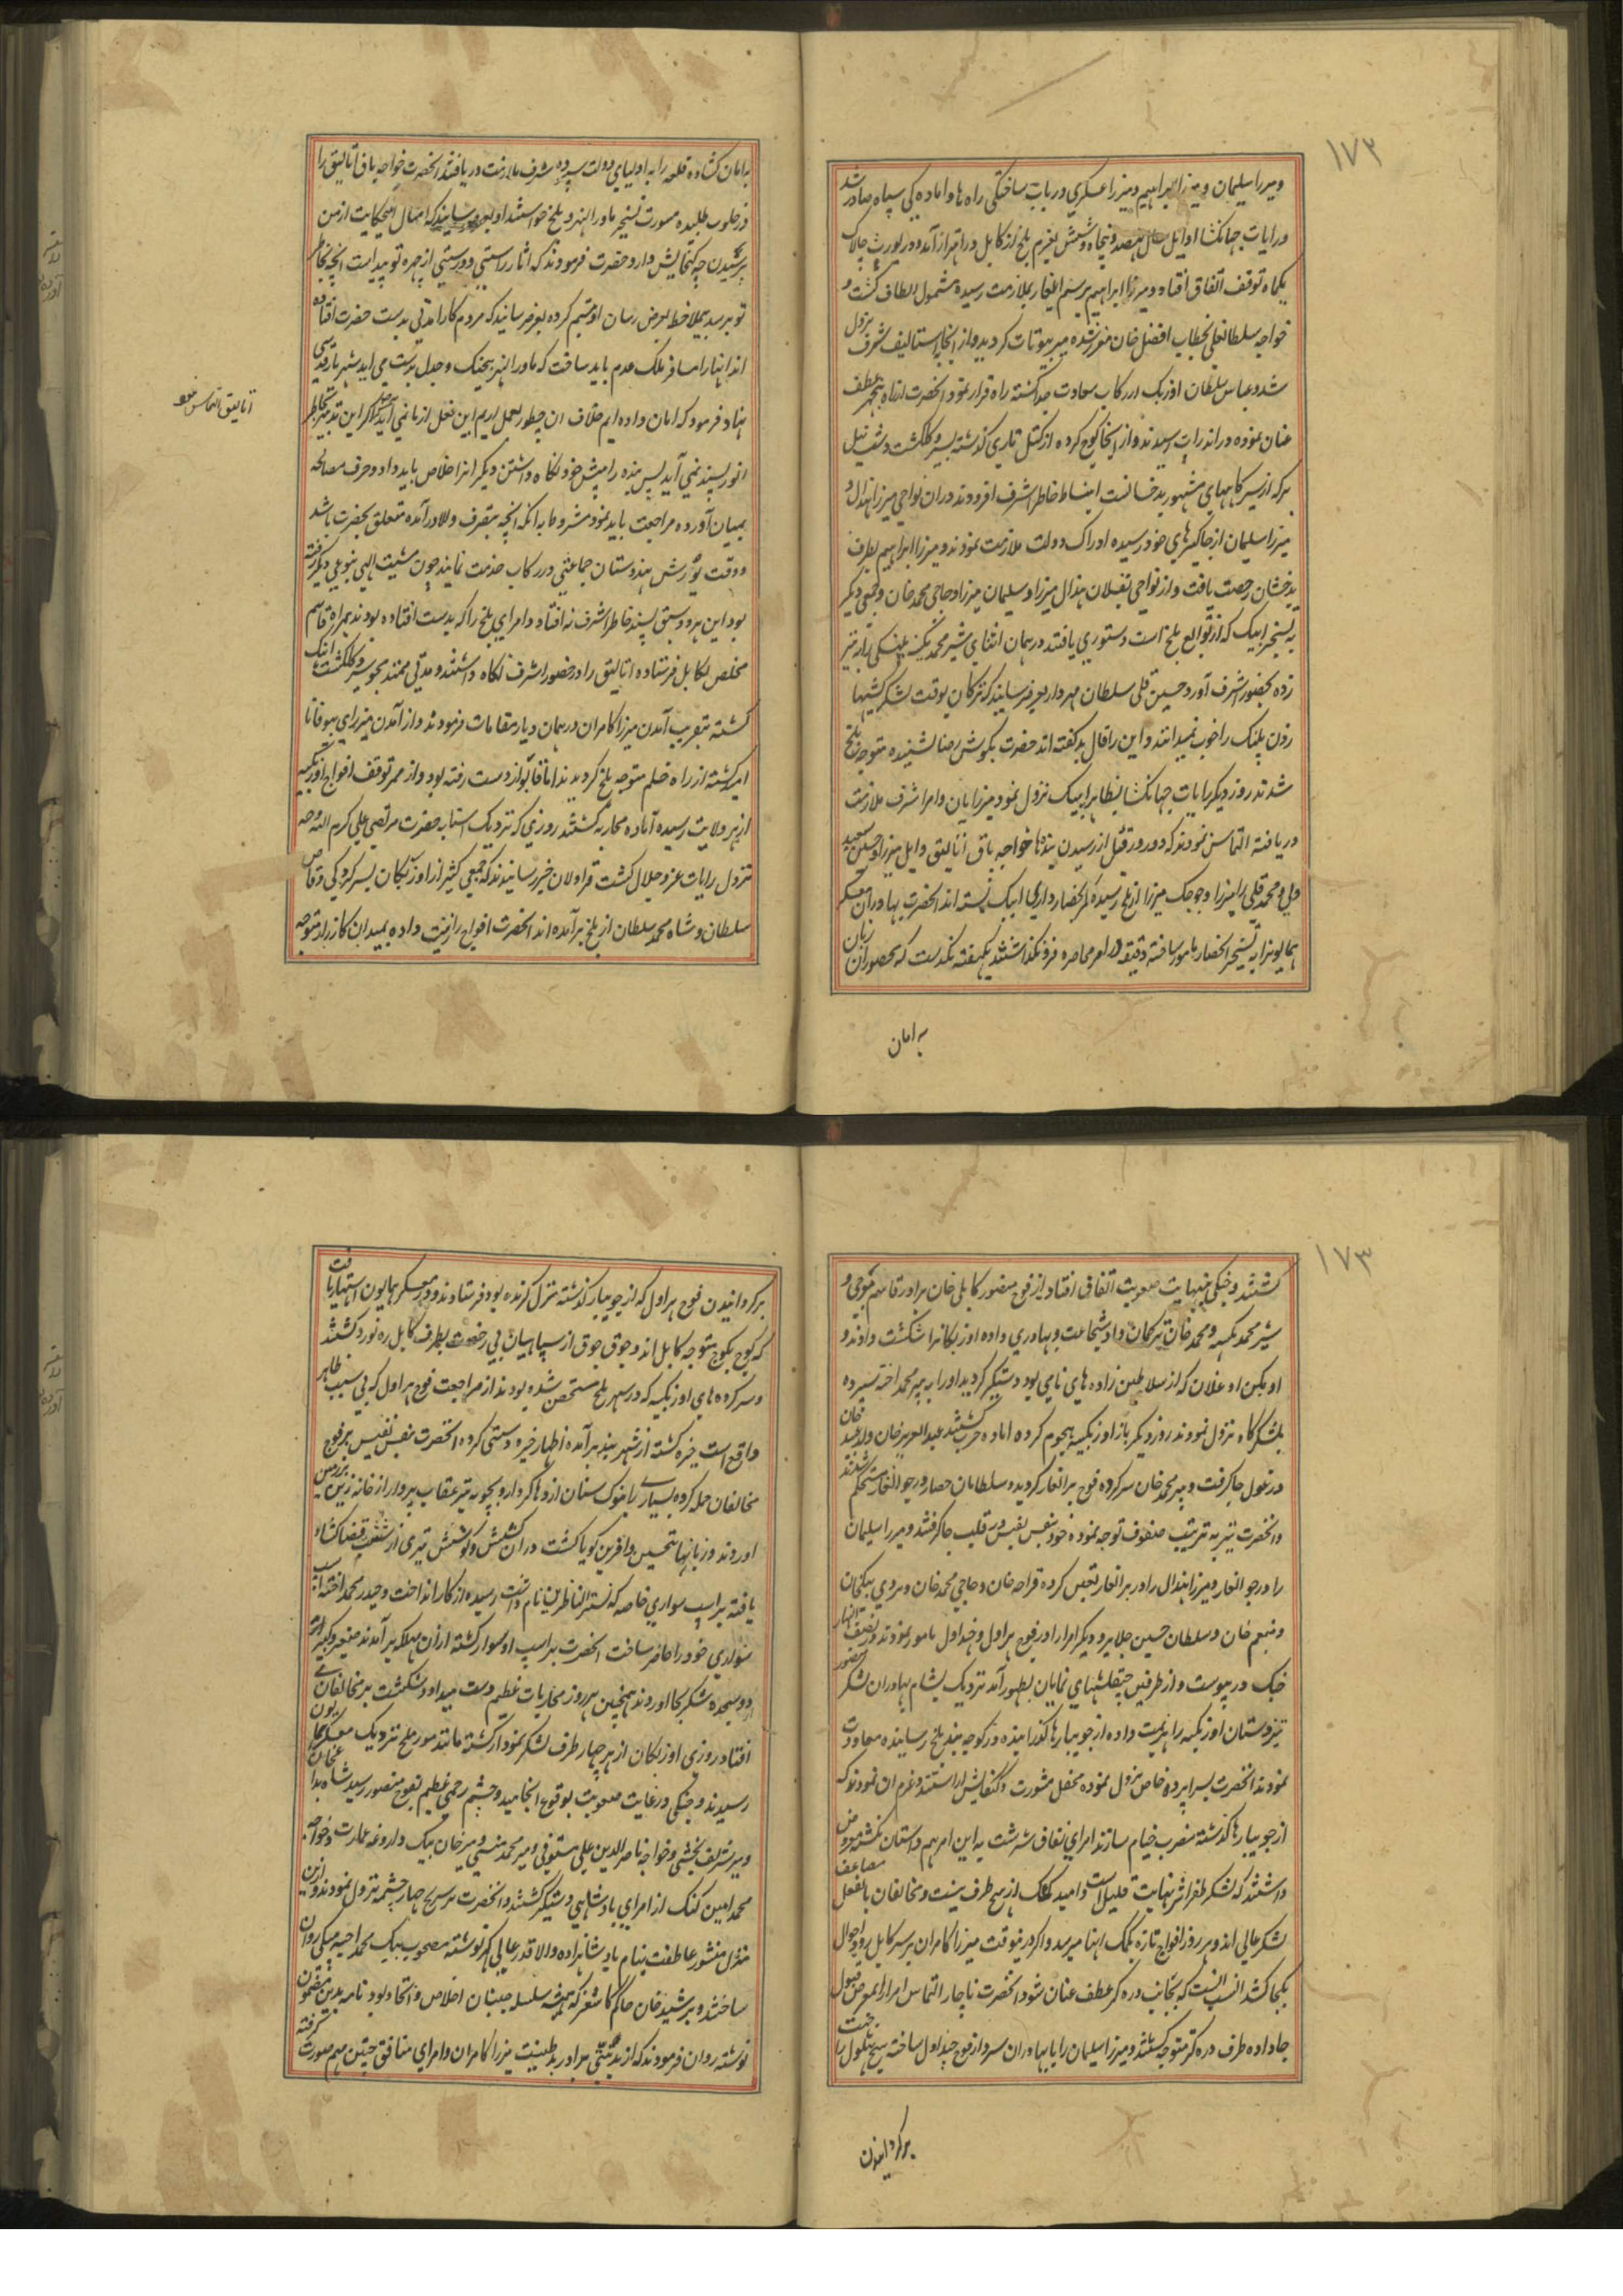 ۱۷۲
و میرزا سلیمان و میرزا ابراهیم و میرزا عسکری در باب ساختگی راه ها و آماده کی سپاه صادر شد
و رایات جهانکشا اوایل سال نهصد و پنجاه و شش بعزم بلخ از کابل در اهتزاز آمده در یورت چالاک
یکماه توقف اتفاق افتاد و میرزا ابراهیم برسم ایلغار بملازمت رسیده مشمول الطاف کشت و
خواجه سلطانعلی بخطاب افضل خان مفرشده میر بیوتات کردید و از انجا باستالیف شرف نزول
شد و عباس سلطان اوزبک از رکاب سعادت جدا کشته راه فرار نمود انحضرت از راه پنجهیر عطف
عنان نموده در اندراب رسیدند و از انجا کوچ کرده از کتل تاری کذشته بسیر و کلکشت دشت نیل
بر که از سیرکاههای مشهور بدخشانست انبساط خاطر اشرف افزودند در ان نواحی میرزا هندال و
میرزا سلیمان از جاکیرهای خود رسیده ادراک دولت ملازمت نمودند و میرزا ابراهیم بطرف
بدخشان رخصت یافت و از نواحی بقلان هندال میرزا و سلیمان میرزا و حاجی محمد خان و جمعی دیکر
به تسخیر ایبک که از توابع بلخ است دستوری یافتند در همان اثنای شیر محمد پکنه پلنکی را به تیر
زده بحضور اشرف آورد حسین قلی سلطان مهردار بعرض رسانید که ترکان بوقت لشکر کشیها
زدن پلنک را خوب نمیدانند و این را فال بد کفته اند حضرت بکوش رضا نشنیده متوجه بلخ
شدند روز دیکر رایات جهانکشا بظاهر ایبک نزول نمود میرزایان و امرا شرف ملازمت
دریافته التماس نمودند که دو روز قبل از رسیدن بنده ها خواجه باق اتالیق و ایل میرزا و حسین سعید
و محمد قلی میرزا و جوجک میرزا از بلخ رسیده کمر بحصار داری ایبک بسته اند انحضرت بهادران معسکر
همایونرا به تسخیر انحصار مامور ساخته دقیقه در امر محاصره فرو نکذاشتند یکهفته نکذشت که محصوران زبان
به امان
به امان کشاده قلعه را به اولیای دولت سپرده شرف ملازمت دریافتند انحضرت خواجه باق اتالیق را
در خلوت طلبیده مشورت تسخیر ماورالنهر و بلخ خواستند او بعرض رسانید که امثال این حکایت از من
پرسیدن چه کنجایش دارد حضرت فرمودند که اثار راستی و درستی از چهره تو پیداست انچه بخاطر
تو برسد بیملاحظه بعرض رسان او تبسم کرده بعرض رسانید که مردم کار امدنی بدست حضرت افتاده
اند اینها را مسافر ملک عدم باید ساخت که ماورالنهر بیجنک و جدل بدست می اید شهریار قدسی
نهاد فرمود که امان داده ایم خلاف ان چطور بعمل اریم این فعل از ما نمی آید اتالیق التماس نمود که اکر این تدبیر بخاطر
اتالیق التماس نمود
انور پسند نمی آید پس بنده را پیش خود نکاه داشتن و دیکر انرا خلاص باید داد و حرف مصالحه
بمیان آورده مراجعت باید نمود مشروط به انکه انچه بتصرف والا در آمده متعلق بحضرت باشد
و وقت یورش هندوستان جماعتی در رکاب خدمت نمایند چون مشیت الهی بنوعی دیکر رفته
بود این هر دو شق پسند خاطر اشرف نه افتاد و امرای بلخ را که بدست افتاده بودند بهمراه قاسم
مخلص بکابل فرستاده اتالیق را در حضور اشرف نکاه داشتند و مدتی ممتد بجوی سیر و کلکشت ایبک
کشته بتقریب آمدن میرزا کامران در همان دیار مقامات فرمودند و از آمدن میرزای بیوفا نا
امید کشته از راه خلم متوجه بلخ کردیدند اما قابو از دست رفته بود و از ممر توقف افواج اوزبکیه
از هر ولایت رسیده آماده محاربه کشتند روزی که نزدیک استانه حضرت مرتضی علی کرم الله وجهه
نزول رایات عز و جلال کشت قراولان خبر رسانیدند که جمعی کثیر از اوزبکان بسر کردکی وقاص
سلطان و شاه محمد سلطان از بلخ بر آمده اند انحضرت افواج را زینت داده بمیدان کارزار متوجه
۱۷۳
کشتند و جنکی بنهایت صعوبت اتفاق افتاد از فوج منصور کابلی خان برادر قاسم موجی و
شیر محمد پکنه و محمد خان ترکمان داد شجاعت و بهادری داده اوزبکانرا شکست دادند و
اوبکن اوغلان که از سلاطین زاده های نامی بود دستکیر کردید اورا به پیر محمد اخته سپرده
بلشکرکاه نزول نمودند روز دیکر باز اوزبکیه هجوم کرده اماده حرب کشتند عبدالعزیز خان ولد عبید خان
در غول جا کرفت و پیر محمد خان سرکرده فوج برانغار کردید و سلطانان حصار در جوانغار مستحکم شدند
و انحضرت نیز به ترتیب صفوف توجه نموده خود بنفس نفیس در قلب جا کرفتند و میرزا سلیمان
را در جوانغار و میرزا هندال را در برانغار تعین کرده قراچه خان و حاجی محمد خان و تردی بیکخان
و منعم خان و سلطان حسین جلایر و دیکر امرا را در فوج هراول و چنداول مامور نمودند و در نصف النهار
جنک در پیوست و از طرفین چپقلشهای نمایان بظهور آمد نزدیک بشام بهادران لشکر منصور
تیز دستان اوزبکیه را هزیمت داده از جویبارها کذرانیده در کوچه بند بلخ رسانیده معاودت
نمودند انحضرت بسراپرده خاص نزول نموده محفل مشورت و کنکایش اراستند و عزم ان نمودند که
از جویبارها کذشته مضرب خیام سازند امرای نفاق سرشت به این امر هم داستان نکشته معروض
داشتند که لشکر ظفر اثر بنهایت قلیل است و امید کمک از هیچ طرف نیست و مخالفان بالفعل مضاعف
لشکر عالی اند و هر روز افواج تازه بکمک اینها میرسد و اکر درینوقت میرزا کامران بر سر کابل رود احوال
بکجا کشد انسب انست که بجانب دره کز عطف عنان شود انحضرت ناچار التماس امرا را بعرض قبول
جا داده طرف دره کز متوجه کشتند و میرزا سلیمان را با بهادران سردار فوج چنداول ساخته شیخ بهلول را جهت
برکردانیدن
برکردانیدن فوج هراول که از جویبار کذشته منزل کزیده بود فرستادند و در معسکر همایون اشتهار یافت
که کوچ بکوچ متوجه کابل اند و جوق جوق از سپاهیان بی رخصت بطرف کابل ره نورد کشتند
و سرکرده های اوزبکیه که در شهر بلخ متحصن شده بودند از مراجعت فوج هراول که بی سبب ظاهر
واقع است خیره کشته از شهر بند بر آمده اظهار خیره دستی کرده انحضرت بنفس نفیس بر فوج
مخالفان حمله کرده بسیاری را بنوک سنان اژدها کردار و بچوبه تیر عقاب پرواز از خانه زین بر زمین
اوردند و زبانها بتحسین و افرین کویا کشت در ان کشش و کوشش تیری از شصت قضا کشاد
یافته بر اسپ سواری خاصه که تسرالناظرین نام داشت رسیده از کار انداخت و حیدر محمد اخته اسپ
سواری خود را حاضر ساخت انحضرت بر اسپ او سوار کشته از ان مهلکه بر آمدند صغیر و کبیر اردو
دو سجده شکر بجا اوردند همچنین هر روز محاربات عظیم دست میداد و شکست بر مخالفان می
افتاد روزی اوزبکان از هر چهار طرف لشکر نمودار کشته مانند مور ملخ نزدیک معسکر همایون
رسیدند و جنکی در غایت صعوبت بوقوع انجامید و چشم زخمی عظیم بفوج منصور رسید شاه بداغخان
و میر شریف بخشی و خواجه ناصرالدین علی مستوفی و میر محمد منشی و میر خان بیک داروغه عمارت و خواجه
محمد امین کنک از امرای بادشاهی دستکیر کشتند و انحضرت بر سر چهار چشمه نزول نمودند و ازین
منزل منشور عاطفت بنام بادشاهزاده والا قدر عالی کهر نوشته مصحوب بیک محمد اخته بیکی روان
ساختند و برشید خان حاکم کاشغر که همیشه سلسله جنبان اخلاص و اتحاد بود نامه بدین مضمون
نوشته روان فرمودند که از بدنیتی برادر بد طینت میرزا کامران و امرای منافق چنین مهم صورت کرفته